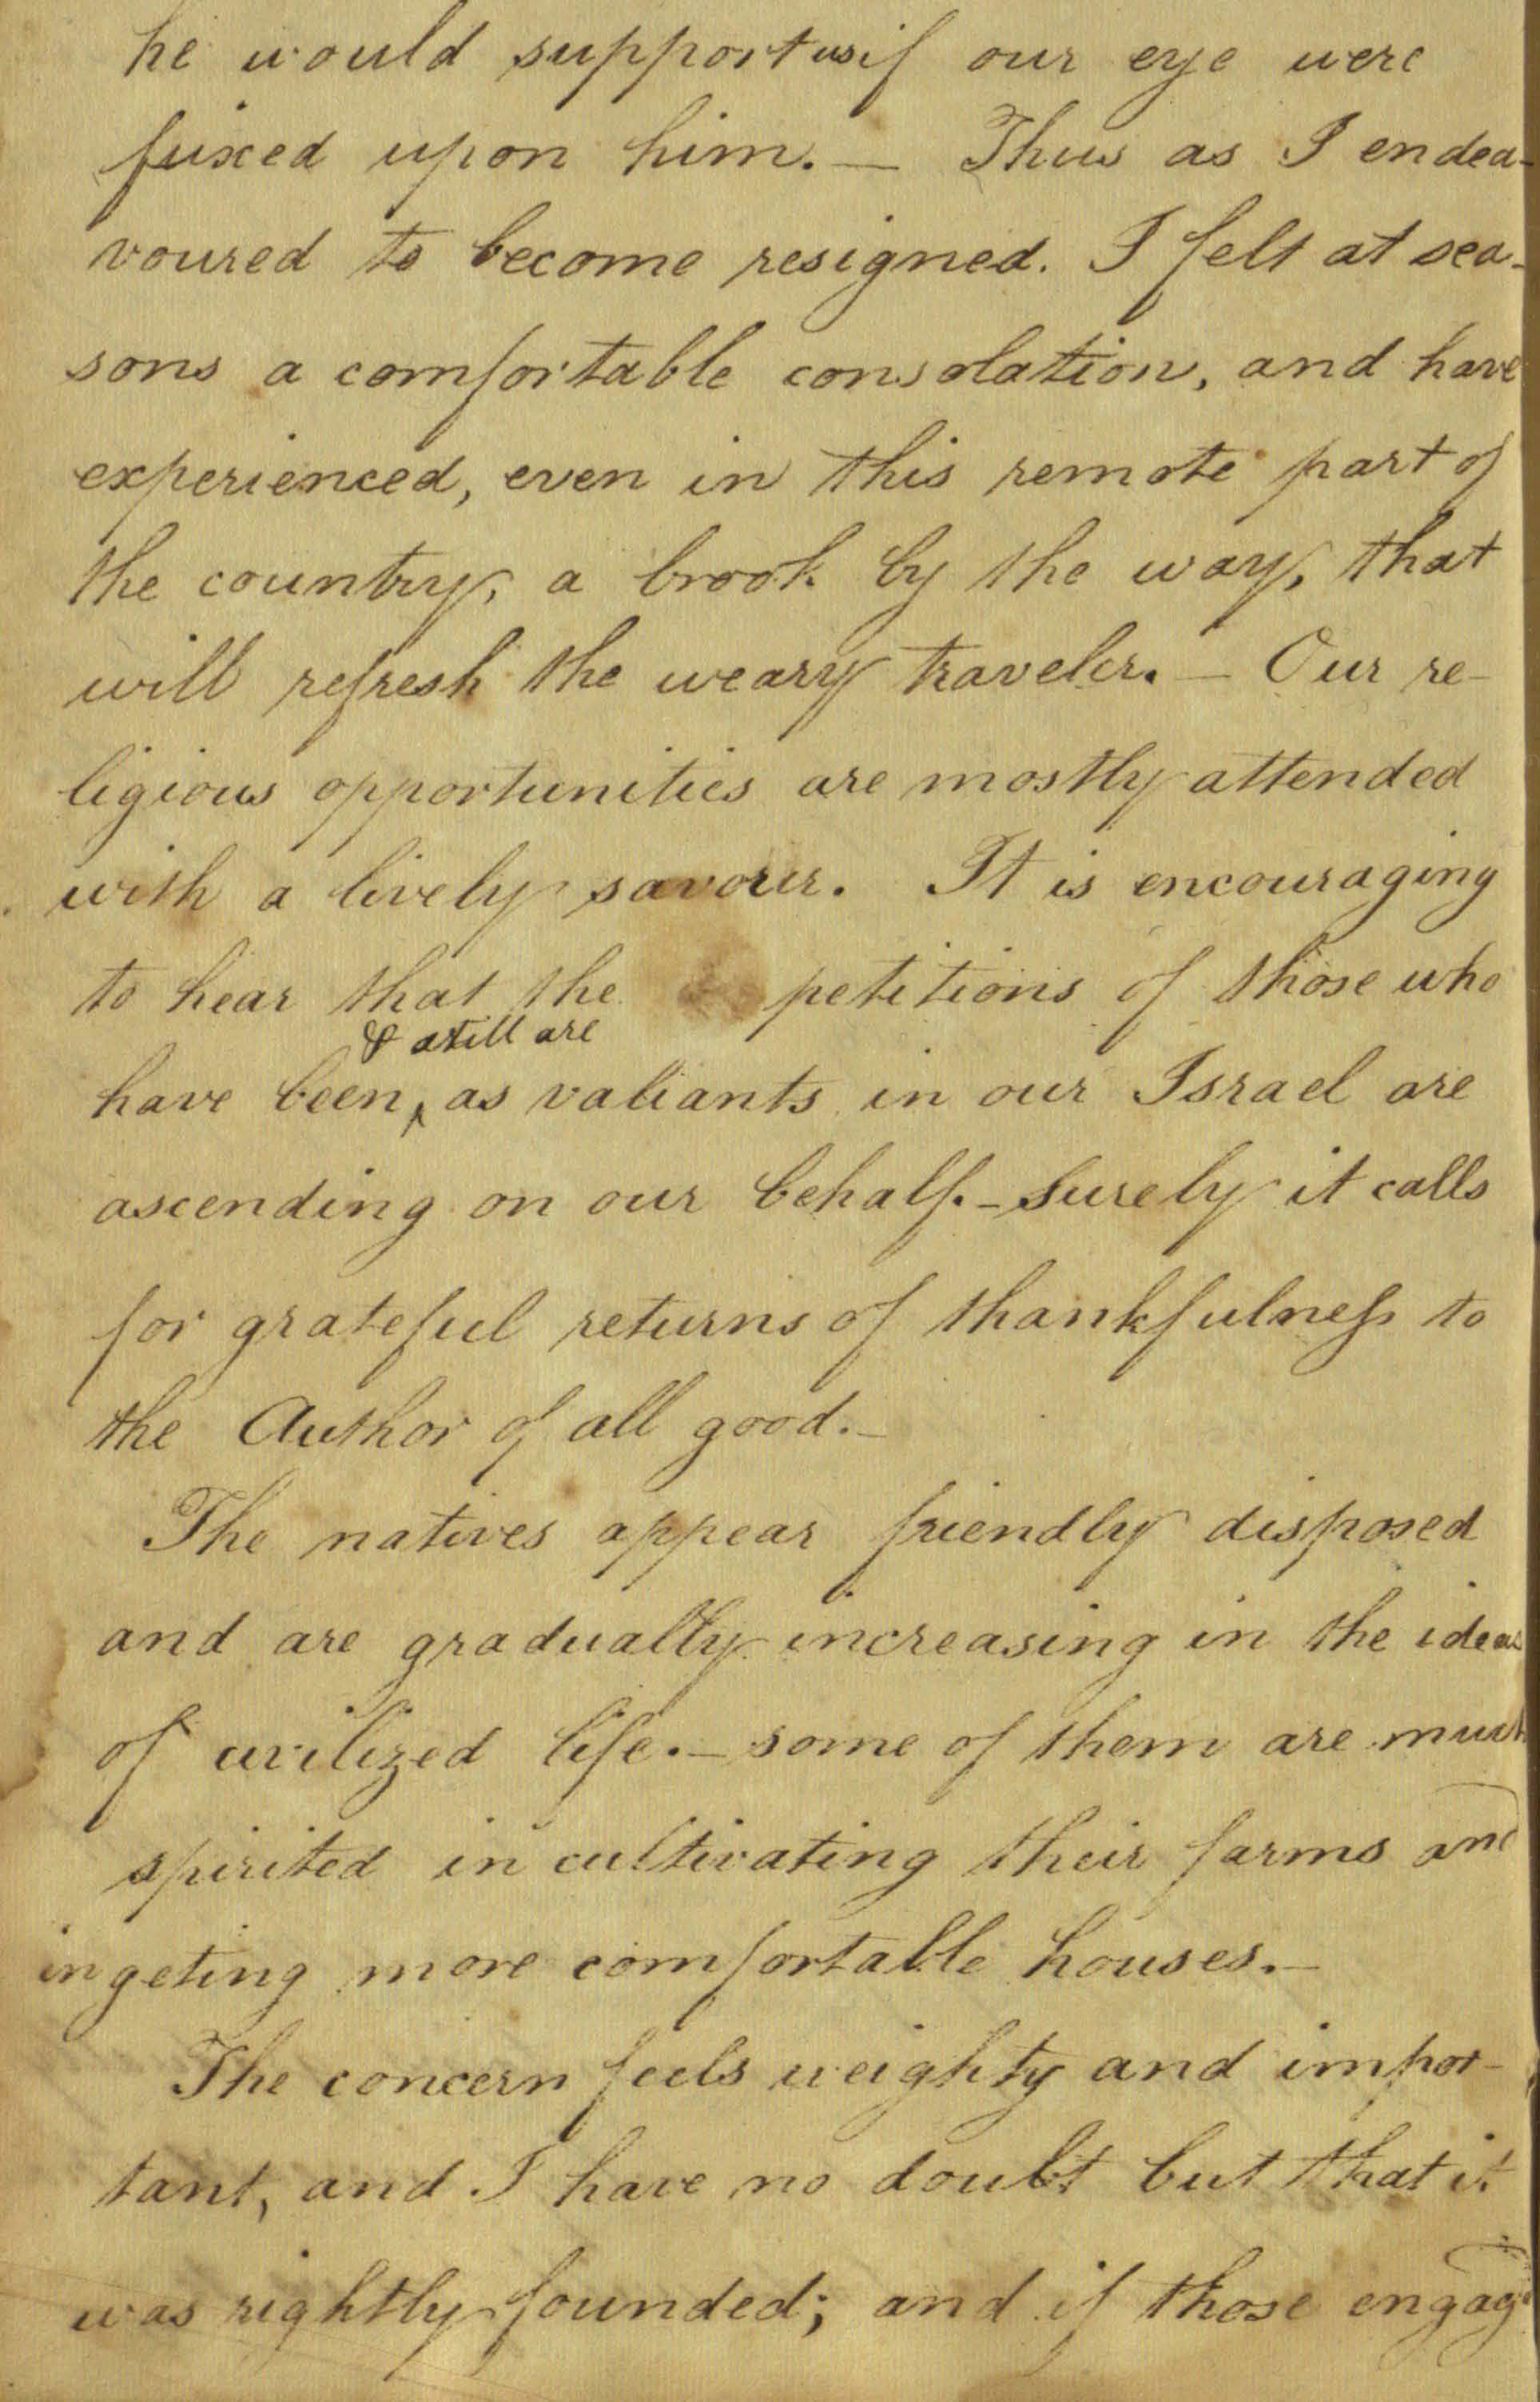 he would support us if our eye were
fixed upon him. — Thus as I endea-
voured to become resigned. I felt at sea-
sons a comfortable consolation, and have
experienced, even in this remote part of
the country, a brook by the way, that
will refresh the weary traveler. — Our re-
ligious opportunities are mostly attended
with a lively savour. It is encouraging
to hear that the petitions of those who
& still are
have been, as valiants in our Israel are
ascending on our behalf. - Surely it calls
for grateful returns of thankfulneſs to
the Author of all good. -
The natives appear friendly disposed
and are gradually increasing in the ideas
of civilized life. — some of them are much
spirited in cultivating their farms and
in geting more comfortable houses. —
The concern feels weighty and impor-
tant, and I have no doubt but that it
was rightly founded; and if those engag